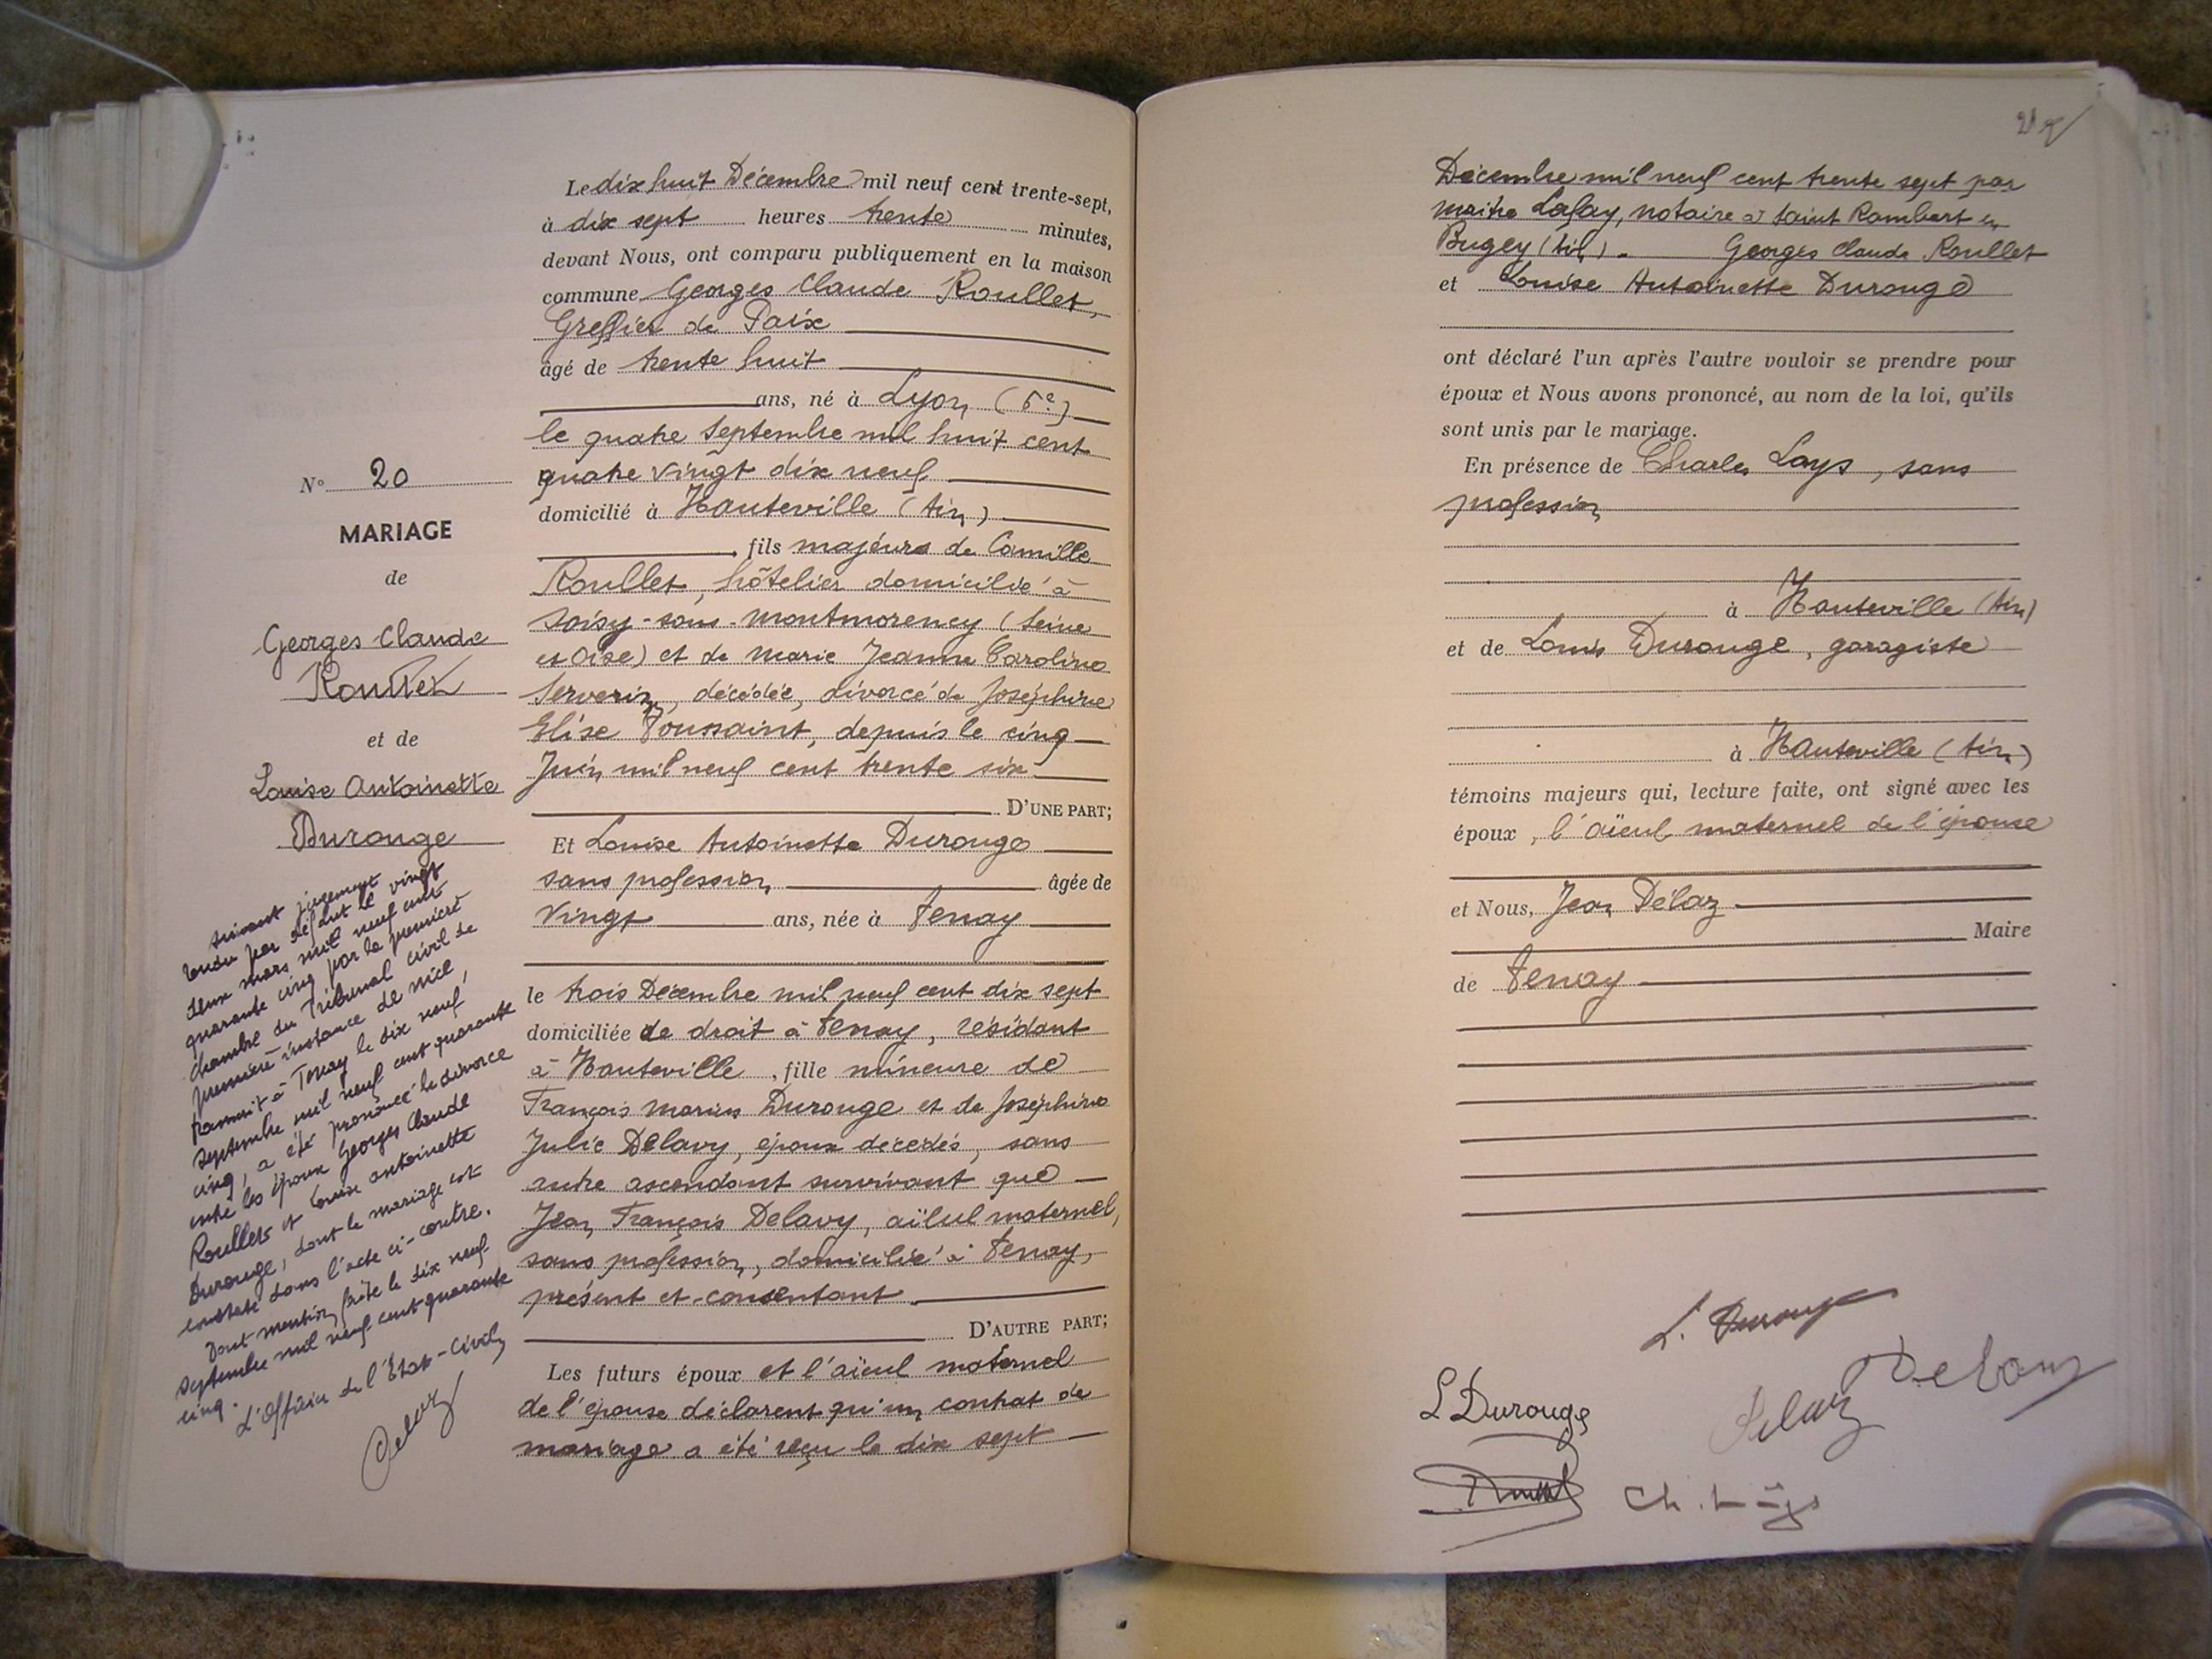 N° 20
MARIAGE
de
Georges Claude
Roullet
et de
Louise Antoinette
Durouge
Suivant jugement
rendu par défaut le vingt
deux mars mil neuf cent
quarante cinq par la première
chambre du Tribunal civil de
première instance de Nice,
transmit à Tenay le dix neuf
septembre mil neuf cent quarante
cinq, a été prononcé le divorce
entre les époux Georges Claude
Roullet et Louise Antoinette
Durouge, dont le mariage est
constaté dans l'acte ci-contre.
Dont mention faite le dix neuf
septembre mil neuf cent quarante
cinq.
L'Officier de l'État-Civil,
Delaz
Le dix huit Décembre mil neuf cent trente-sept,
à dix sept heures trente minutes,
devant Nous, ont comparu publiquement en la maison
commune Georges Claude Roullet,
Greffier de Paix
âgé de trente huit
ans, né à Lyon (5e.)
le quatre Septembre mil huit cent
quatre vingt dix neuf
domicilié à Hauteville (Ain)
, fils majeur de Camille
Roullet, hôtelier domicilié à
Soisy-sous-Montmorency (Seine
et Oise) et de Marie Jeanne Caroline
Serverin, décédée, divorcé de Joséphine
Elise Toussaint, depuis le cinq
Juin mil neuf cent trente six
D'UNE PART;
Et Louise Antoinette Durouge
sans profession âgée de
Vingt ans, née à Tenay
le trois Décembre mil neuf cent dix sept
domiciliée de droit à Tenay, résidant
à Hauteville , fille mineure de
François Marius Durouge et de Joséphine
Julie Delavy, époux décédés, sans
autre ascendant survivant que
Jean François Delavy, aïeul maternel,
sans profession, domicilié à Tenay,
présent et consentant
D'AUTRE PART;
Les futurs époux et l'aïeul maternel
de l'épouse déclarent qu'un contrat de
mariage a été reçu le dix sept
Décembre mil neuf cent trente sept par
maitre Lafay, notaire à Saint Rambert en
Bugey (Ain). Georges Claude Roullet
et Louise Antoinette Durouge
ont déclaré l'un après l'autre vouloir se prendre pour
époux et Nous avons prononcé, au nom de la loi, qu'ils
sont unis par le mariage.
En présence de Charles Lays, sans
profession
à Hauteville (Ain)
et de Louis Durouge, garagiste
à Hauteville (Ain)
témoins majeurs qui, lecture faite, ont signé avec les
époux, l'aïeul maternel de l'épouse
et Nous, Jean Délaz
Maire
de Tenay
L. Durouge
L Durouge
Delaz
Delavy
Roullet
Ch. Lays